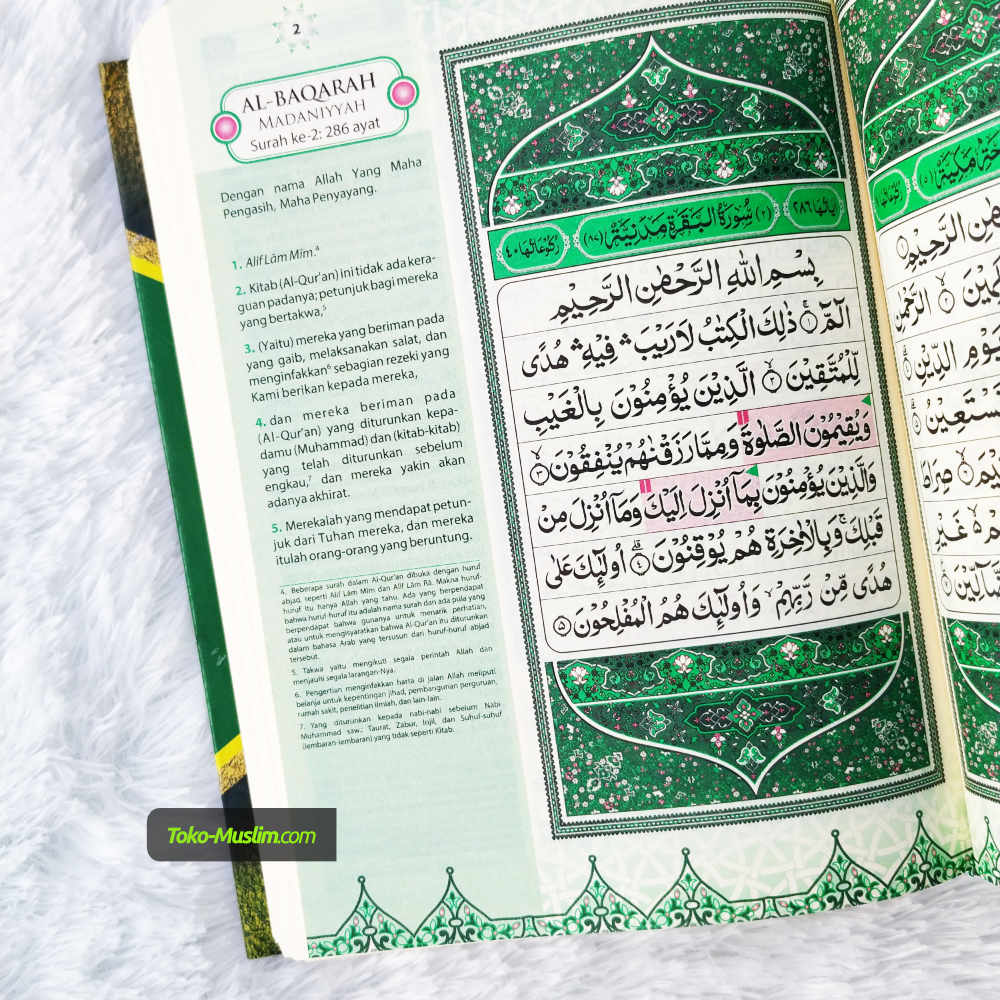 2
AL-BAQARAH
MADANIYYAH
Surah ke-2: 286 ayat
Dengan nama Allah Yang Maha
Pengasih, Maha Penyayang.
1. Alif Lām Mīm.⁴
2. Kitab (Al-Qur'an) ini tidak ada kera-
guan padanya; petunjuk bagi mereka
yang bertakwa,⁵
3. (Yaitu) mereka yang beriman pada
yang gaib, melaksanakan salat, dan
menginfakkan⁶ sebagian rezeki yang
Kami berikan kepada mereka,
4. dan mereka beriman pada
(Al-Qur'an) yang diturunkan kepa-
damu (Muhammad) dan (kitab-kitab)
yang telah diturunkan sebelum
engkau,⁷ dan mereka yakin akan
adanya akhirat.
5. Merekalah yang mendapat petun-
juk dari Tuhan mereka, dan mereka
itulah orang-orang yang beruntung.
4. Beberapa surah dalam Al-Qur'an dibuka dengan huruf
abjad, seperti Alif Lām Mīm dan Alif Lām Rā. Makna huruf-
huruf itu hanya Allah yang tahu. Ada yang berpendapat
bahwa huruf-huruf itu adalah nama surah dan ada pula yang
berpendapat bahwa gunanya untuk menarik perhatian,
atau untuk mengisyaratkan bahwa Al-Qur'an itu diturunkan
dalam bahasa Arab yang tersusun dari huruf-huruf abjad
tersebut.
5. Takwa yaitu mengikuti segala perintah Allah dan
menjauhi segala larangan-Nya.
6. Pengertian menginfakkan harta di jalan Allah meliputi
belanja untuk kepentingan jihad, pembangunan perguruan,
rumah sakit, penelitian ilmiah, dan lain-lain.
7. Yang diturunkan kepada nabi-nabi sebelum Nabi
Muhammad saw.: Taurat, Zabur, Injil, dan Suhuf-suhuf
(lembaran-lembaran) yang tidak seperti Kitab.
اٰيَاتُهَا ٢٨٦ (٢) سُوْرَةُ الْبَقَرَةِ مَدَنِيَّةٌ (٨٧) رُكُوْعَاتُهَا ٤٠
بِسْمِ اللّٰهِ الرَّحْمٰنِ الرَّحِيْمِ
الۤمّۤ ۝١ ذٰلِكَ الْكِتٰبُ لَا رَيْبَ ۛ فِيْهِ ۛ هُدًى
لِّلْمُتَّقِيْنَ ۝٢ الَّذِيْنَ يُؤْمِنُوْنَ بِالْغَيْبِ
وَيُقِيْمُوْنَ الصَّلٰوةَ وَمِمَّا رَزَقْنٰهُمْ يُنْفِقُوْنَ ۝٣
وَالَّذِيْنَ يُؤْمِنُوْنَ بِمَآ اُنْزِلَ اِلَيْكَ وَمَآ اُنْزِلَ مِنْ
قَبْلِكَ ۚ وَبِالْاٰخِرَةِ هُمْ يُوْقِنُوْنَ ۝٤ اُولٰۤىِٕكَ عَلٰى
هُدًى مِّنْ رَّبِّهِمْ ۙ وَاُولٰۤىِٕكَ هُمُ الْمُفْلِحُوْنَ ۝٥
Toko-Muslim.com